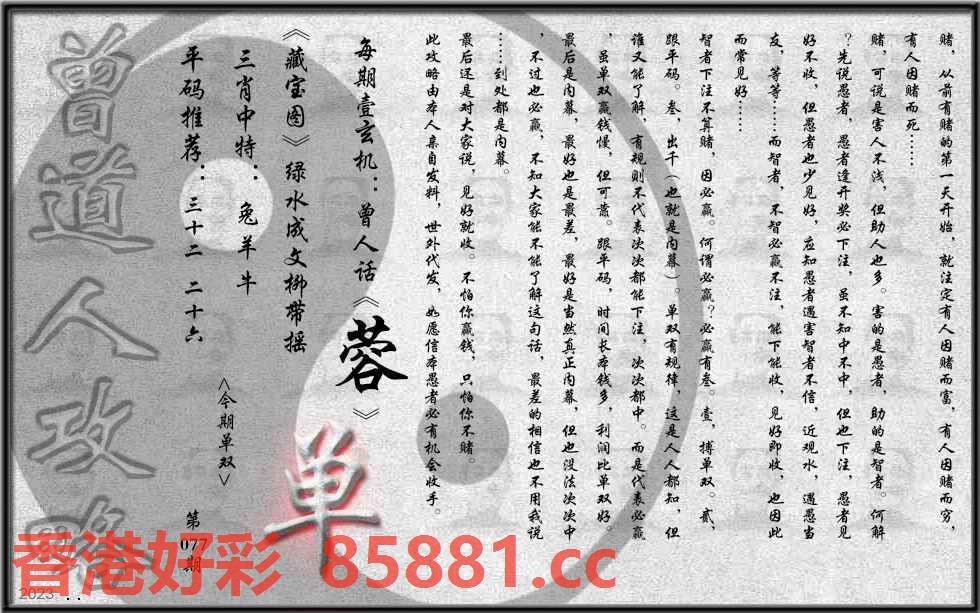 赌，从前有赌的第一天开始，就注定有人因赌而富，有人因赌而穷，
有人因赌而死……
赌，可说是害人不浅，但助人也多。害的是愚者，助的是智者。何解
？先说愚者，愚者逢开奖必下注，虽不知中不中，但也下注，愚者见
好不收，但愚者也少见好，应知愚者遇害智者不信，近观水，遇愚当
友，等等……而智者，不智必赢不注，能下能收，见好即收，也因此
而常见好……
智者下注不算赌，因必赢。何谓必赢？必赢有叁。壹，搏单双。贰，
跟平码。叁，出千（也就是内幕）。单双有规律，这是人人都知，但
谁又能了解，有规则不代表次次都能下注，次次都中。而是代表必赢
，虽单双赢钱慢，但可靠。跟平码，时间长本钱多，利润比单双好。
最后是内幕，最好也是最差，最好是当然真正内幕，但也没法次次中
，不过也必赢，不知大家能不能了解这句话，最差的相信也不用我说
……到处都是内幕。
最后还是对大家说，见好就收。不怕你赢钱，只怕你不赌。
此攻略由本人亲自发料，世外代发，如愿信本愚者必有机会收手。
每期壹玄机：曾人话《蓉》
《藏宝图》绿水成文柳带摇
三肖中特：兔羊牛
<今期单双>
单
平码推荐：三十二 二十六
第077期
曾道人攻略
香港好彩 85881.cc
2023